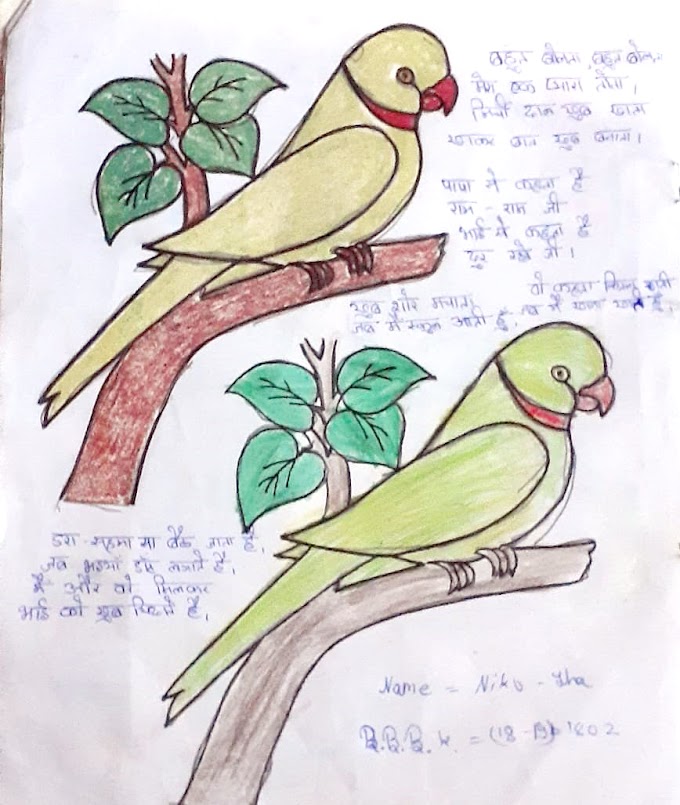 बहुत बोलता बहुत बोलता
मेरा एक प्यारा तोता,
मिर्ची दाल खूब खाता
खाकर बात खूब बनाता।
पापा से कहता है
राम - राम जी
भाई से कहता है
दूर रहो जी।
खूब शोर मचाता,
जब मैं स्कूल आती हूँ,
वो कहता
जब मैं खाना खाते हैं,
डरा - सहमा सा बैठ जाता है,
जब भइया डांट लगाते हैं,
मैं और वो मिलकर
भाई को खूब चिढ़ाते है,
Name = Niku - Jha
1802